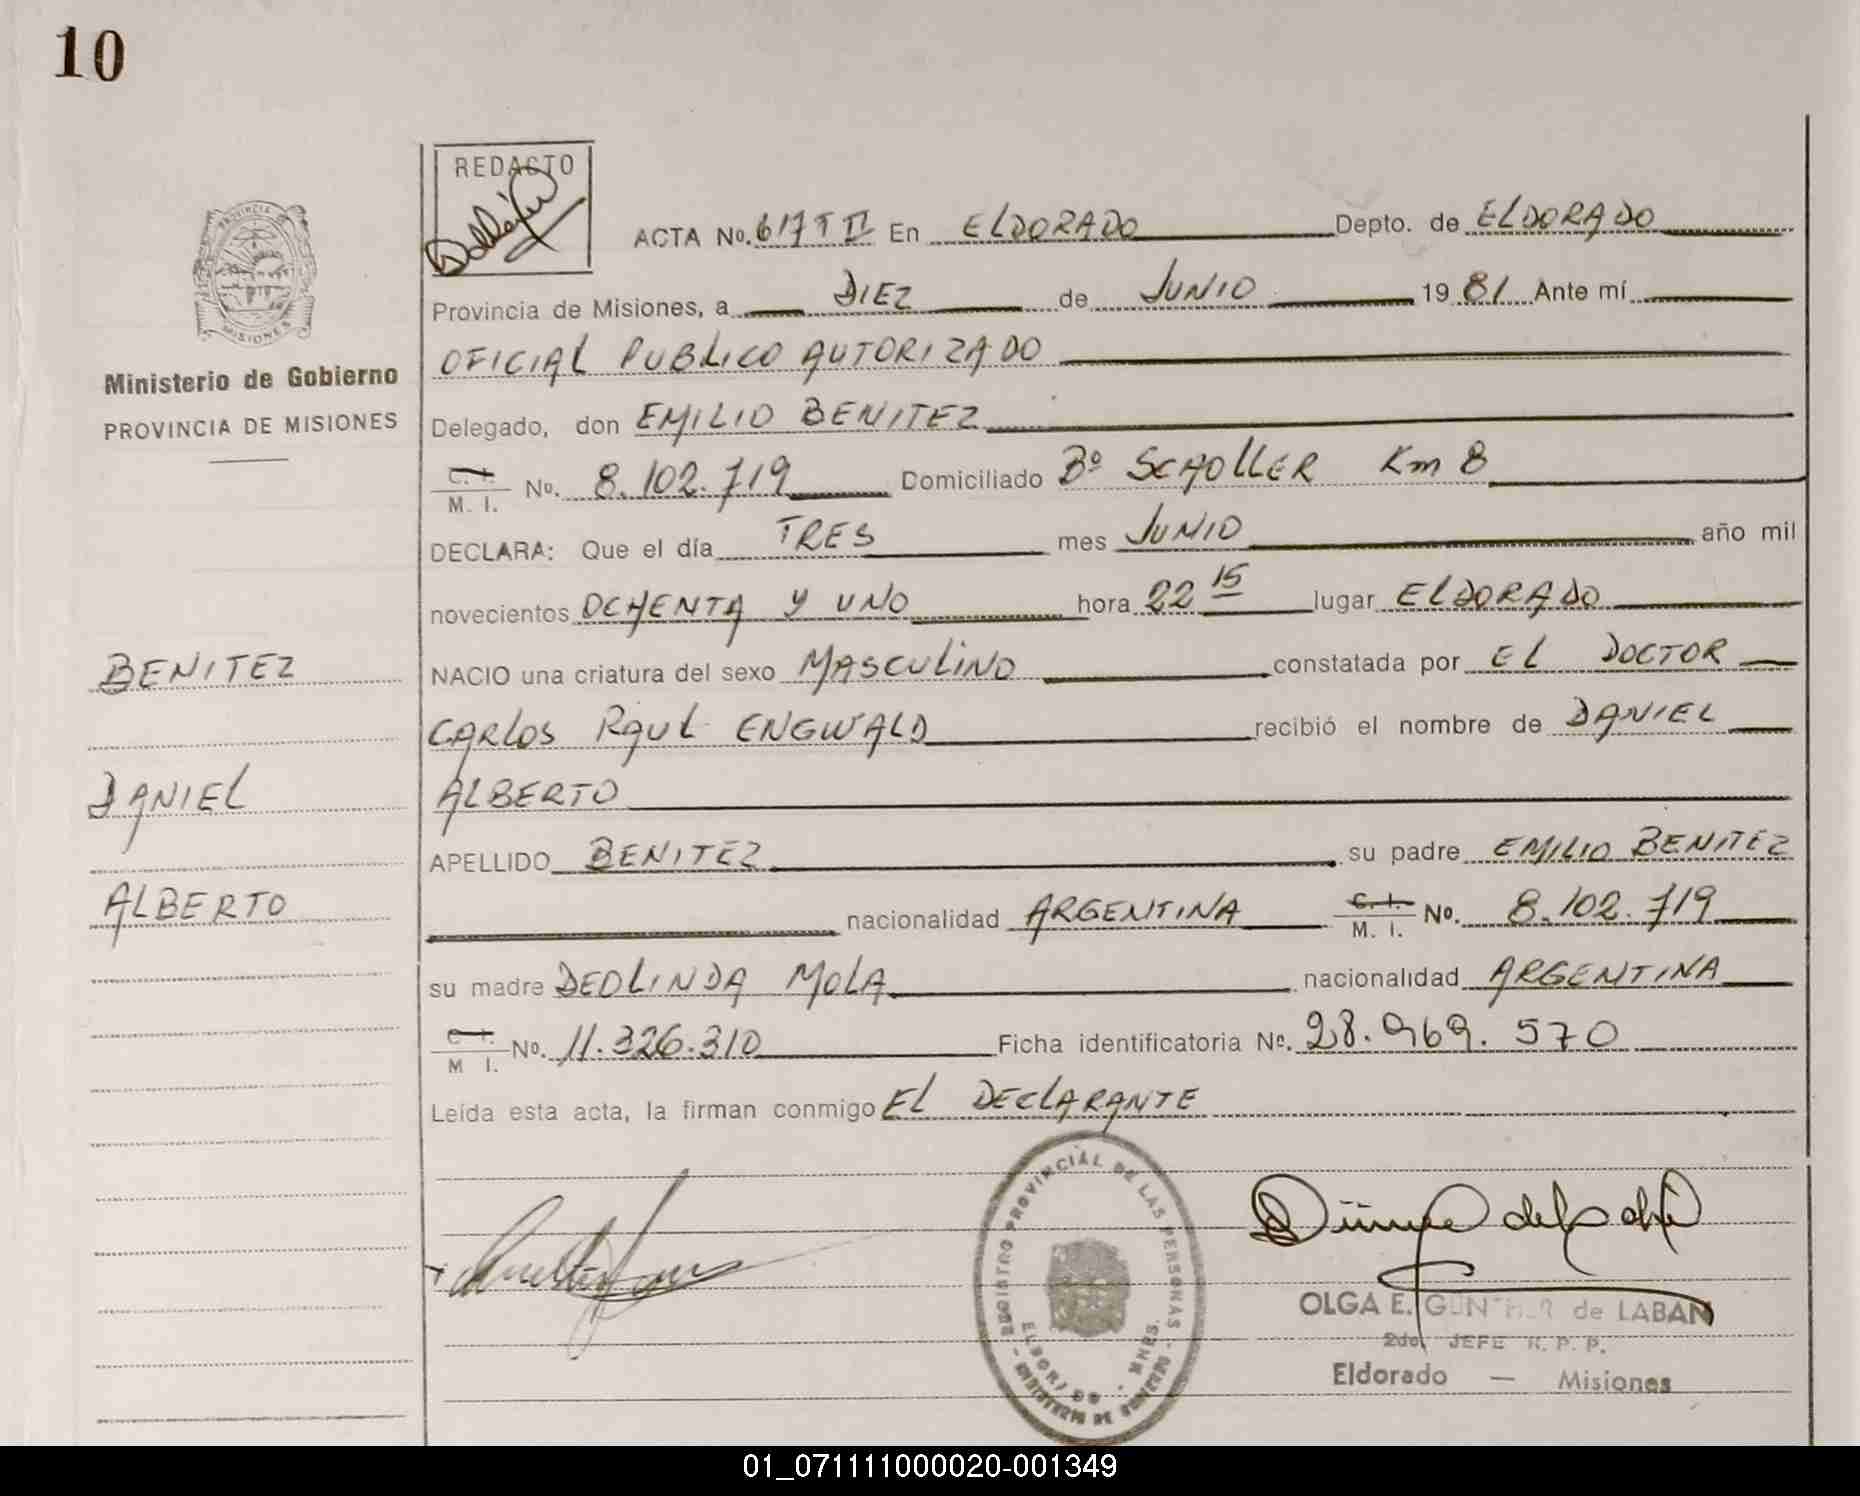 10
REDACTO
PROVINCIA DE MISIONES
Ministerio de Gobierno
PROVINCIA DE MISIONES
BENITEZ
DANIEL
ALBERTO
ACTA No. 617 T II En ELDORADO Depto. de ELDORADO
Provincia de Misiones, a DIEZ de JUNIO 1981 Ante mí
OFICIAL PUBLICO AUTORIZADO
Delegado, don EMILIO BENITEZ
C. I. / M. I. No. 8.102.719 Domiciliado Bº SCHOLLER Km 8
DECLARA: Que el día TRES mes JUNIO año mil
novecientos OCHENTA Y UNO hora 22 15 lugar ELDORADO
NACIO una criatura del sexo MASCULINO constatada por EL DOCTOR
CARLOS RAUL ENGWALD recibió el nombre de DANIEL
ALBERTO
APELLIDO BENITEZ su padre EMILIO BENITEZ
nacionalidad ARGENTINA C. I. / M. I. No. 8.102.719
su madre DEOLINDA MOLA nacionalidad ARGENTINA
C. I. / M. I. No. 11.326.310 Ficha identificatoria No. 28.969.570
Leída esta acta, la firman conmigo EL DECLARANTE
REGISTRO PROVINCIAL DE LAS PERSONAS
ELDORADO - MNES.
MINISTERIO DE GOBIERNO
OLGA E. GUNTHER de LABAN
2do. JEFE R. P. P.
Eldorado — Misiones
01_071111000020-001349